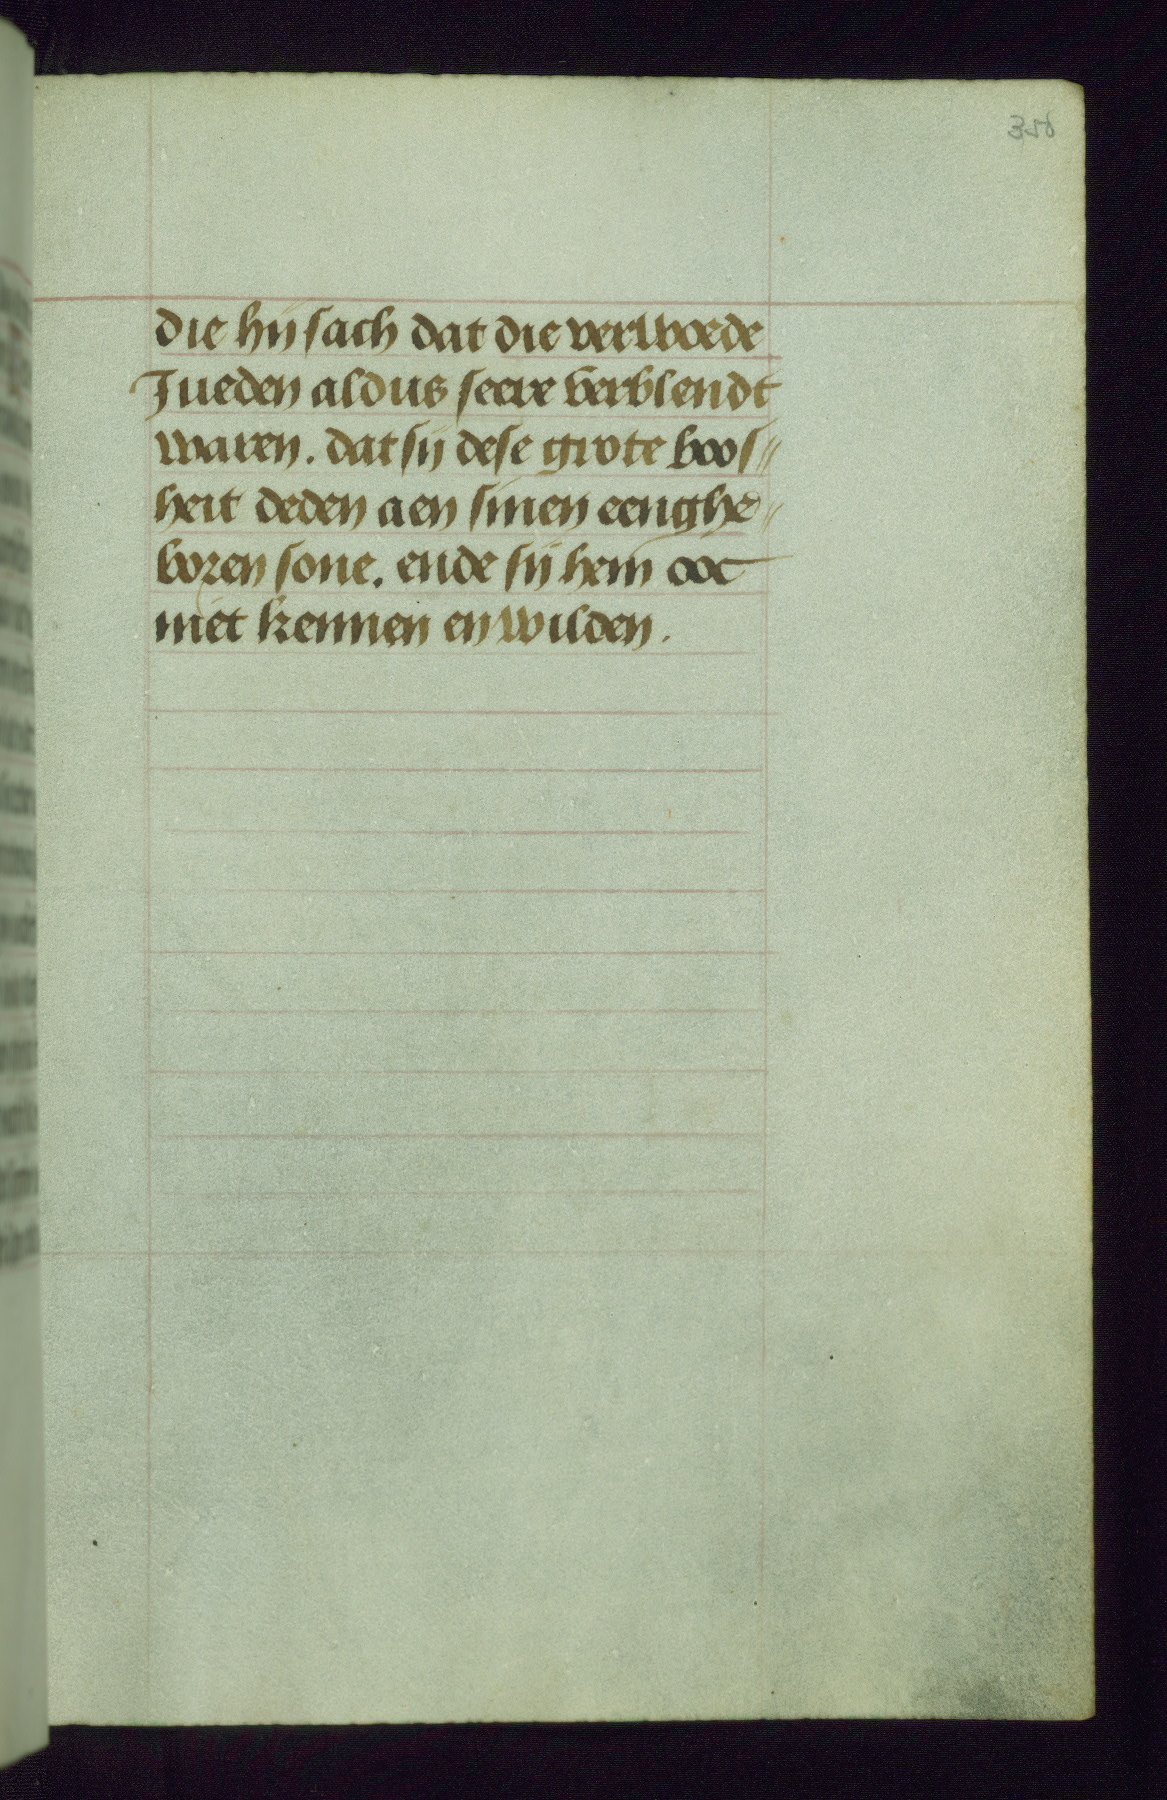 die hij sach dat die verwoede
Jueden aldus seere verblendt
waren. dat sij dese grote boos//
heit deden aen sinen eenghe//
boren sone. ende sij hem ooc
niet kennen en wilden.